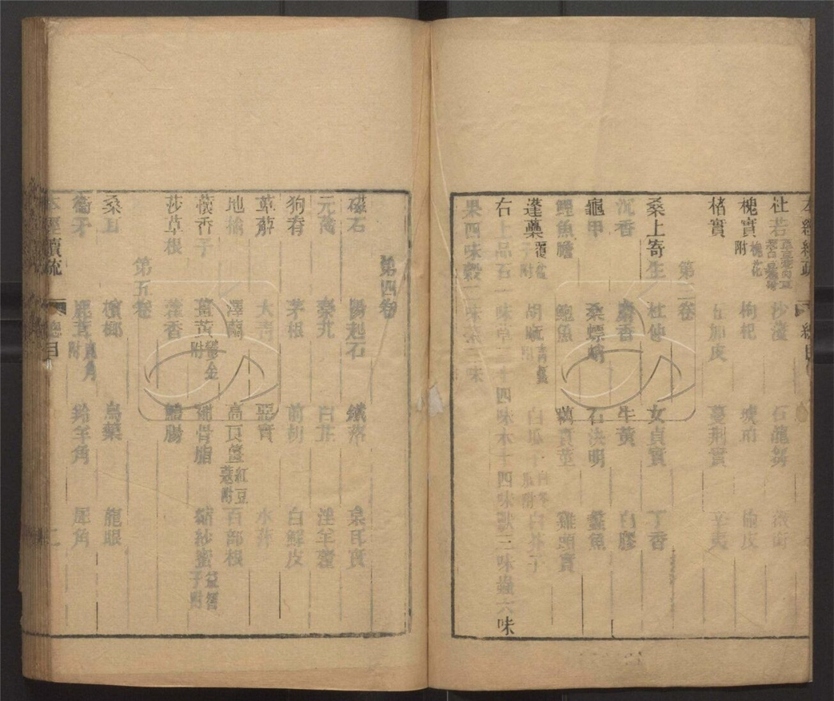 杜若 沙參 石龍芻
槐實附槐花 枸杞
楮實 五加皮 蔓荊實 辛夷
第三卷
桑上寄生 杜仲 女貞實 丁香
沉香 麝香 牛黃 白膠
龜甲 桑螵蛸 石決明 蠡魚
鯉魚膽 鮑魚 藕實莖 雞頭實
蓬蘽
右上品五 味草 十四味木十四味獸三味蟲六味
果四味穀二味菜三味
第四卷
磁石 陽起石 鐵落 枲耳實
元參 秦艽 白芷 淫羊藿
狗脊 茅根 前胡 白鮮皮
萆薢 大青 惡實 水萍
地榆 澤蘭 高良薑紅豆蔻附 百部根
蘹香子 薑黃附鬱金 補骨脂 縮砂蜜益智子附
莎草根 藿香 鱧腸
第五卷
桑耳 檳榔 烏藥 龍眼
衛矛 鹿茸鹿角附 羚羊角 犀角
本經續疏 總目 二